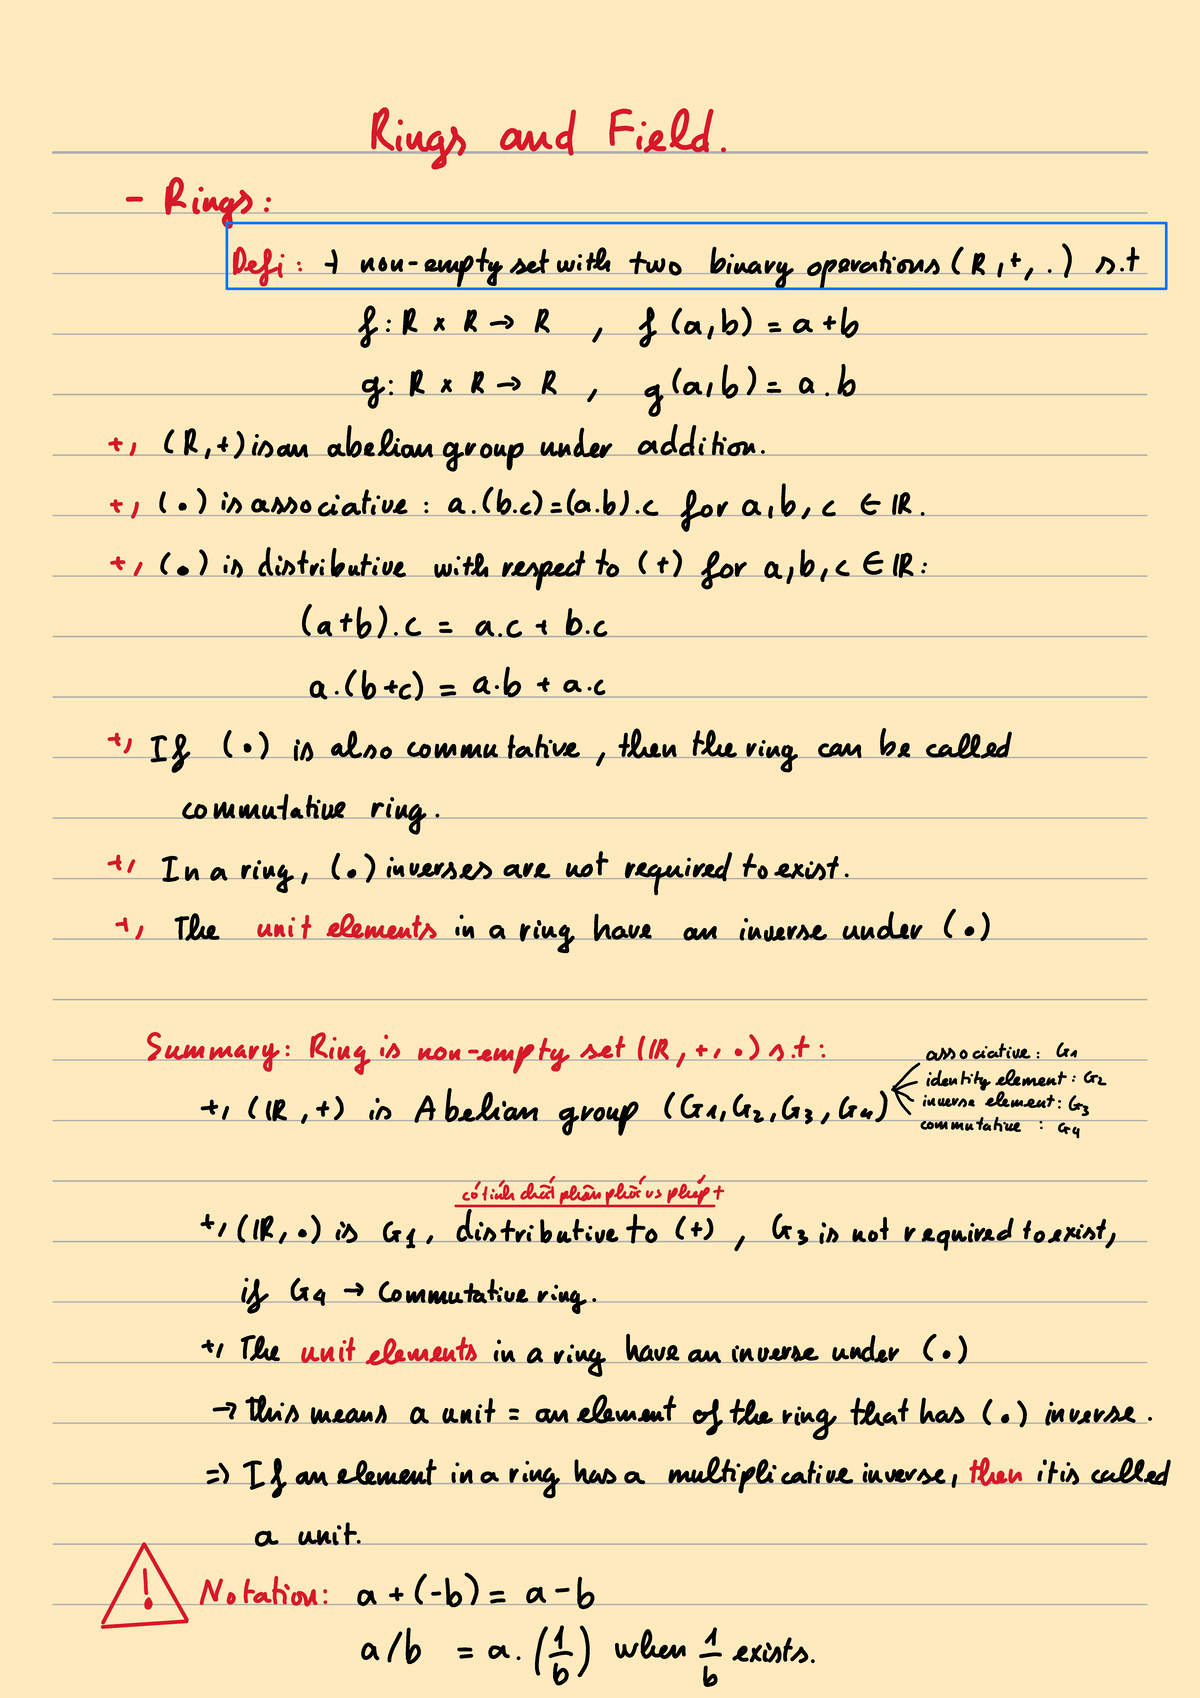 Rings and Field.
- Rings:
Defi: + non-empty set with two binary operations (R, +, .) s.t
f: R × R → R , f(a,b) = a+b
g: R × R → R , g(a,b) = a.b
+, (R,+) is an abelian group under addition.
+, (•) is associative : a.(b.c)=(a.b).c for a,b,c ∈ ℝ.
+, (•) is distributive with respect to (+) for a,b,c ∈ ℝ:
(a+b).c = a.c + b.c
a.(b+c) = a.b + a.c
+, If (•) is also commutative, then the ring can be called
commutative ring.
+, In a ring, (•) inverses are not required to exist.
+, The unit elements in a ring have an inverse under (•)
Summary: Ring is non-empty set (ℝ, +, •) s.t :
+, (ℝ, +) is Abelian group (G1, G2, G3, G4)
associative : G1
identity element : G2
inverse element : G3
commutative : G4
có tính chất phân phối vs phép +
+, (ℝ, •) is G1, distributive to (+) , G3 is not required to exist,
if G4 → Commutative ring.
+, The unit elements in a ring have an inverse under (•)
→ This means a unit = an element of the ring that has (•) inverse.
=> If an element in a ring has a multiplicative inverse, then it is called
a unit.
! Notation: a + (-b) = a - b
a/b = a. (1/b) when 1/b exists.